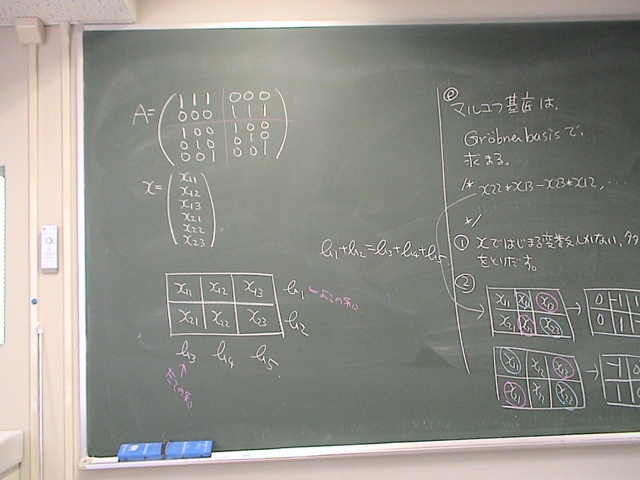 A=
1 1 1 0 0 0
0 0 0 1 1 1
1 0 0 1 0 0
0 1 0 0 1 0
0 0 1 0 0 1
x=
x11
x12
x13
x21
x22
x23
b1+b2=b3+b4+b5
x11 x12 x13 b1 ←よこの和
x21 x22 x23 b2
b3 b4 b5
↑
たての和
マルコフ基底は、
Gröbner basisで、
求まる。
/* x22*x13-x23*x12, ..
*/
① xではじまる変数しかない,
をとりだす。
②
x11 x12 x13 → 0 -1 1
x21 x22 x23 0 1
x11 x12 x13 → -1 0
x21 x22 x23 1 0